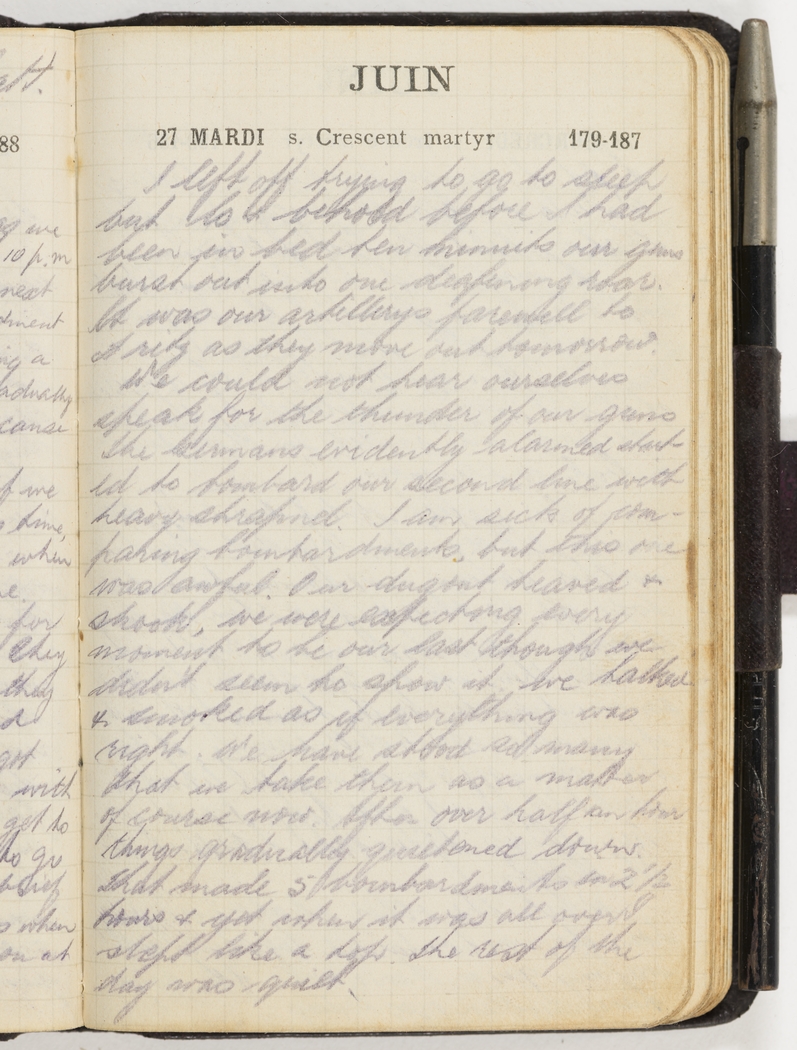 ett.
88
as we
10 p.m
next
ing a
adually
cause
if we
time,
when
for
they
they
got
with
get to
to go
when
on at
JUIN
27 MARDI s. Crescent martyr 179-187
I left off trying to go to sleep
but lo & behood before I had
been in bed ten minuits our guns
burst out into one deafening roar.
It was our artillerys farewell to
Stritz as they move out tomorrow.
We could not hear ourselves
speak for the thunder of our guns
The Germans evidently alarmed start-
ed to bombard our second line with
heavy shrapnel. I am sick of com-
paring bombardments, but this one
was awful. Our dugout heaved &
shook, we were expecting every
moment to be our last though we
didnt seem to show it. we talked
& smoked as if everything was
right. We have stood so many
that we take them as a matter
of course now. After over half an hour
things gradually quietened down.
That made 5 bombardments in 2 1/2
hours & yet when it was all over I
slept like a top. The rest of the
day was quiet.